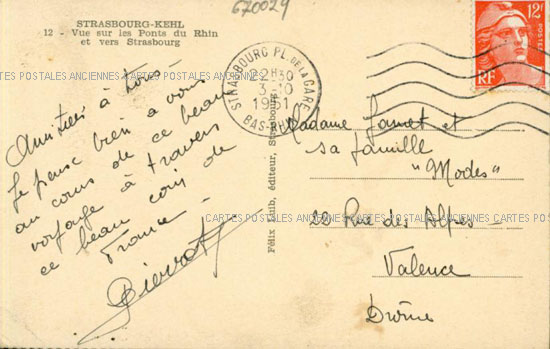 670029
STRASBOURG-KEHL
12 - Vue sur les Ponts du Rhin
et vers Strasbourg
STRASBOURG PL. DE LA GARE
22H30
3-10
1951
BAS-RHIN
12F
POSTES
RF
CARTES POSTALES ANCIENNES CARTES POSTALES ANCIENNES CARTES POSTALES ANCIENNES CARTES POSTALES ANCIENNES
Amitiés à tous -
Je pense bien à vous
au cours de ce beau
voyage à travers
ce beau coin de
France -
Pierrot
Félix Luib, éditeur, Strasbourg
Madame Jamet et
sa famille
"Modes"
22 Rue des Alpes -
Valence
Drôme
CARTES POSTALES ANCIENNES CARTES POSTALES ANCIENNES CARTES POSTALES